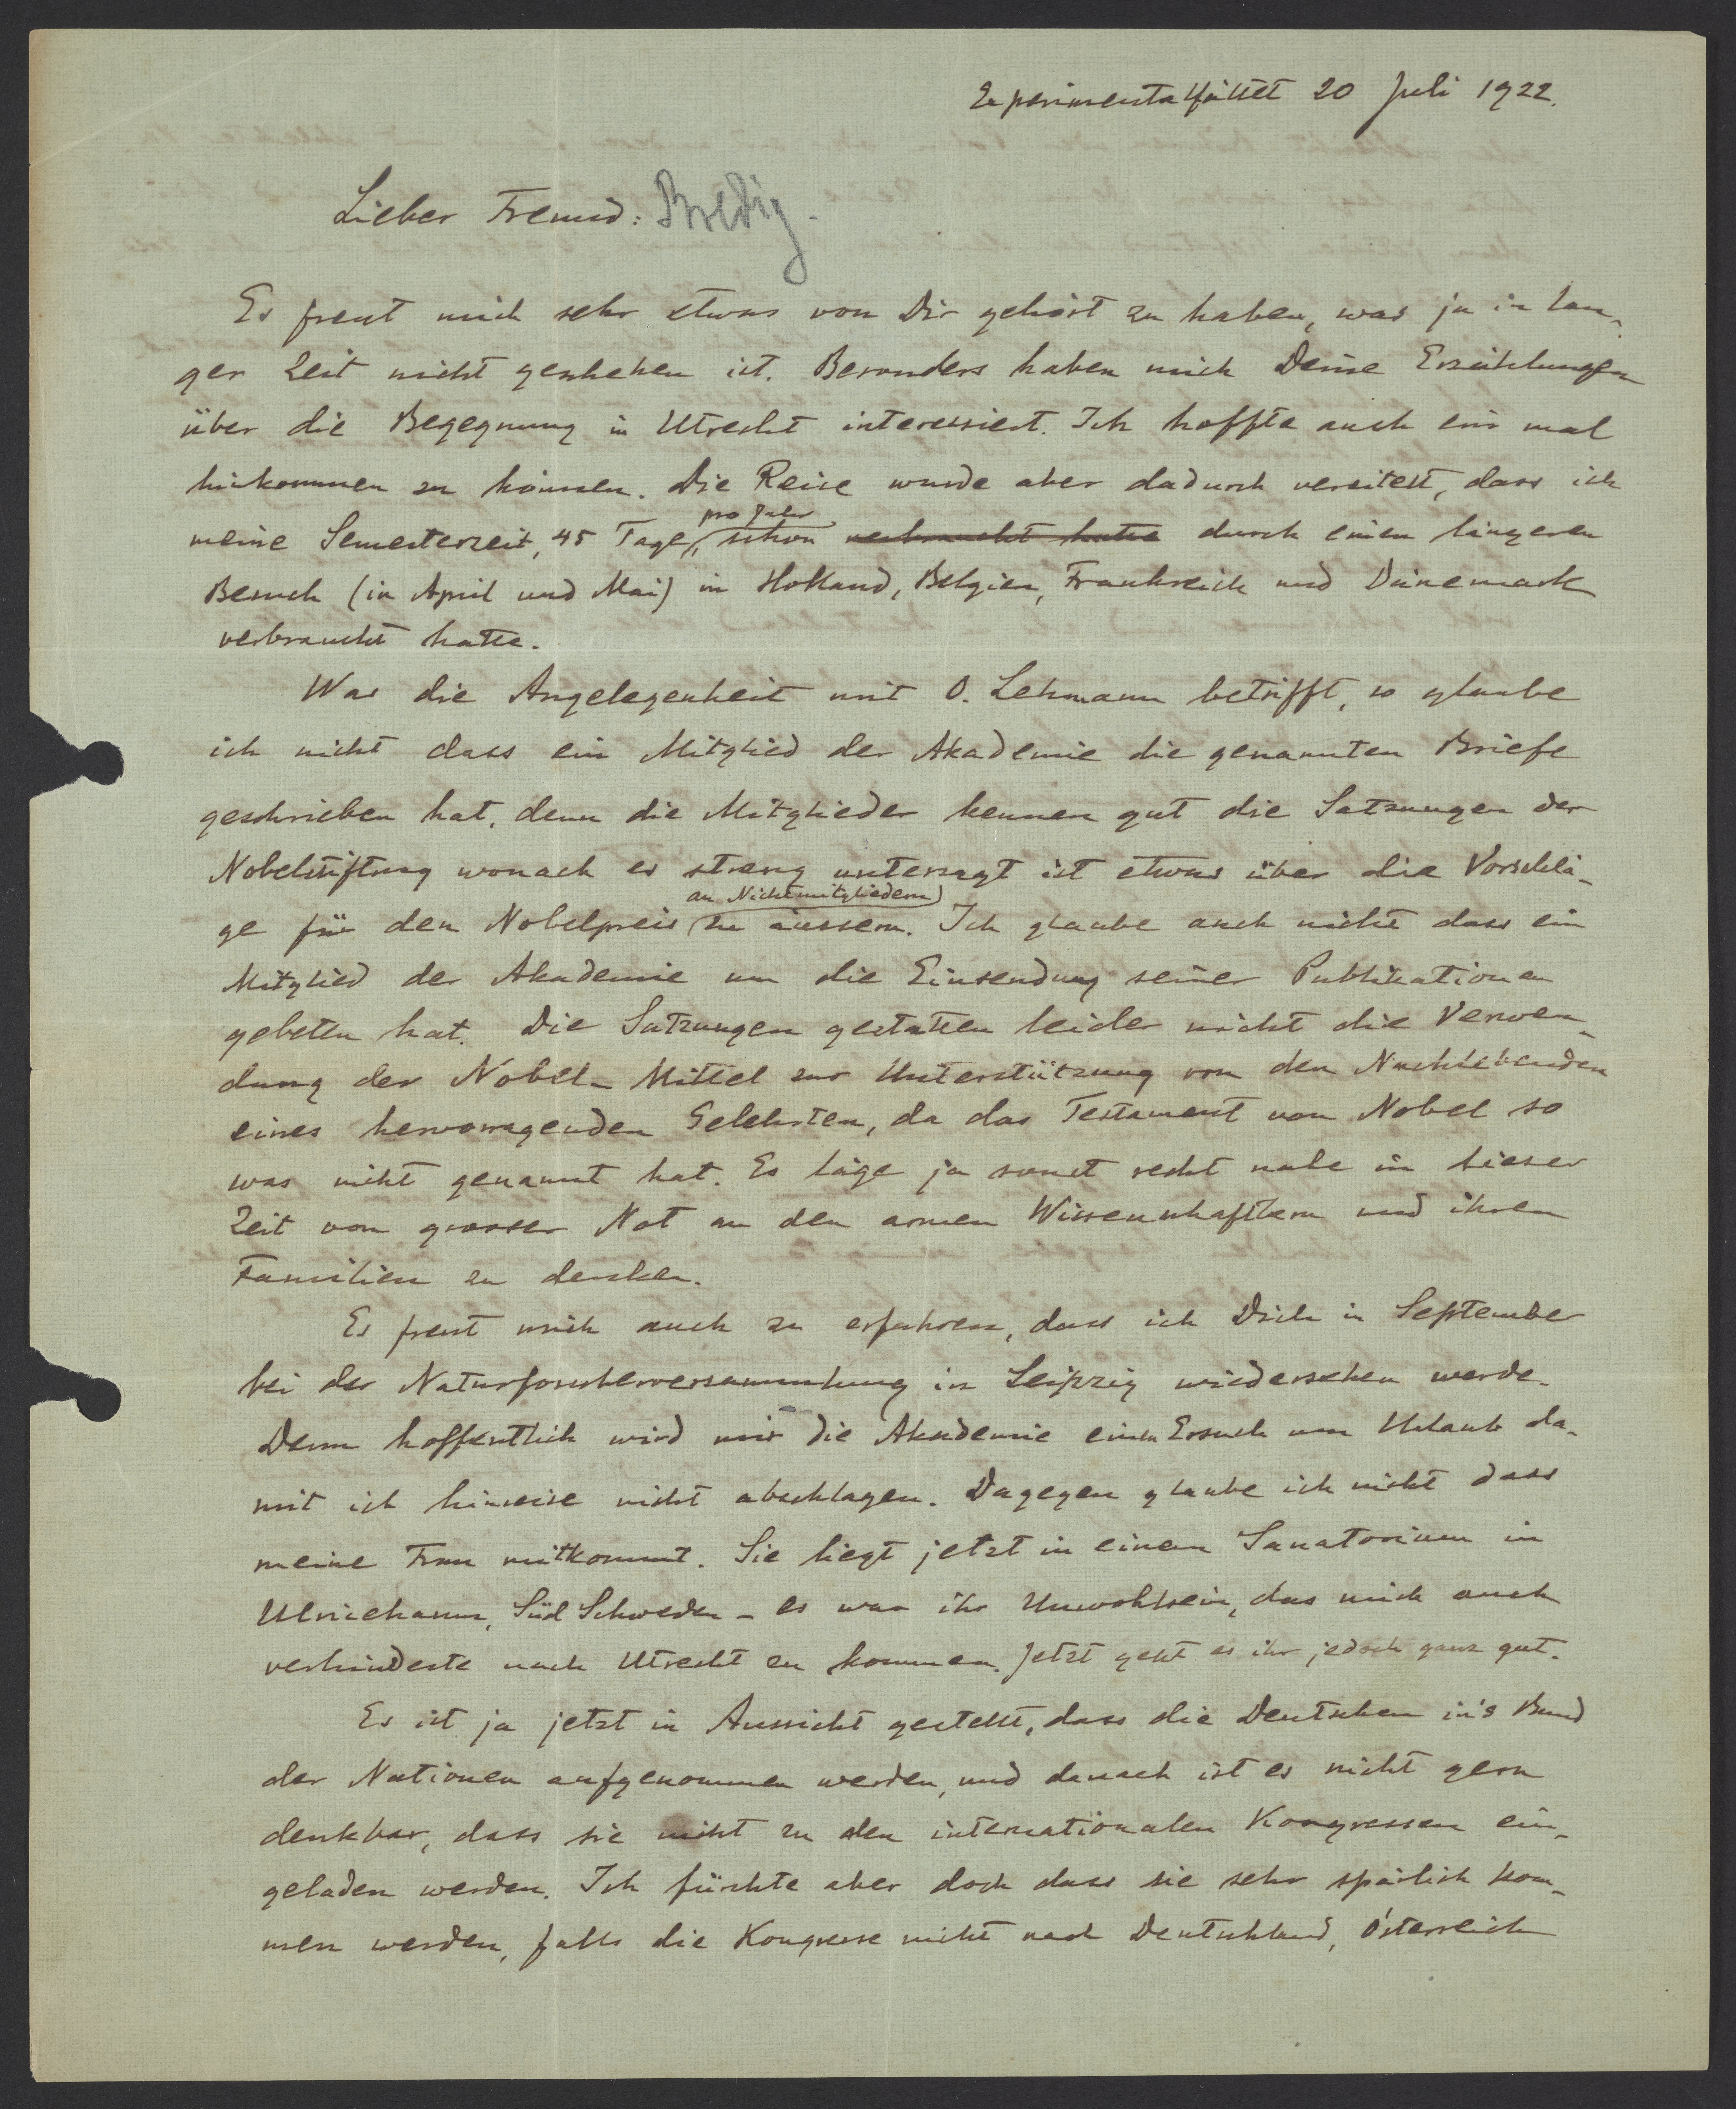 Experimentalfältet 20 Juli 1922.
Lieber Freund: Bredig.
Es freut mich sehr etwas von Dir gehört zu haben, was ja in lan-
ger Zeit nicht geschehen ist. Besonders haben mich Deine Erzählungen
über die Begegnung in Utrecht interessiert. Ich hoffte auch ein mal
hinkommen zu können. Die Reise wurde aber dadurch vereitelt, dass ich
pro Jahr
meine Semesterzeit, 45 Tage, schon verbraucht hatte durch einen längeren
Besuch (in April und Mai) in Holland, Belgien, Frankreich und Dänemark
verbraucht hatte.
Was die Angelegenheit mit O. Lehmann betrifft, so glaube
ich nicht dass ein Mitglied der Akademie die genannten Briefe
geschrieben hat, denn die Mitglieder kennen gut die Satzungen der
Nobelstiftung wonach es streng untersagt ist etwas über die Vorschlä-
an Nichtmitgliedern
ge für den Nobelpreis zu äussern. Ich glaube auch nicht dass ein
Mitglied der Akademie um die Einsendung seiner Publikationen
gebeten hat. Die Satzungen gestatten leider nicht die Verwen-
dung der Nobel-Mittel zur Unterstützung von den Nachlebenden
eines hervorragenden Gelehrten, da das Testament von Nobel so
was nicht genannt hat. Es läge ja sonst recht nahe in dieser
Zeit von grosser Not an den armen Wissenschaftlern und ihren
Familien zu denken.
Es freut mich auch zu erfahren, dass ich Dich in September
bei der Naturforscherversammlung in Leipzig wiedersehen werde.
Denn hoffentlich wird mir die Akademie einen Ersuch um Urlaub da-
mit ich hinreise nicht abschlagen. Dagegen glaube ich nicht dass
meine Frau mitkommt. Sie liegt jetzt in einem Sanatorium in
Ulricehamn, Süd Schweden - es war ihr Unwohlsein, das mich auch
verhinderte nach Utrecht zu kommen. Jetzt geht es ihr jedoch ganz gut.
Es ist ja jetzt in Aussicht gestellt, dass die Deutschen in's Bund
der Nationen aufgenommen werden, und danach ist es nicht gern
denkbar, dass sie nicht zu den internationalen Kongressen ein-
geladen werden. Ich fürchte aber doch dass sie sehr spärlich kom-
men werden, falls die Kongresse nicht nach Deutschland, Österreich